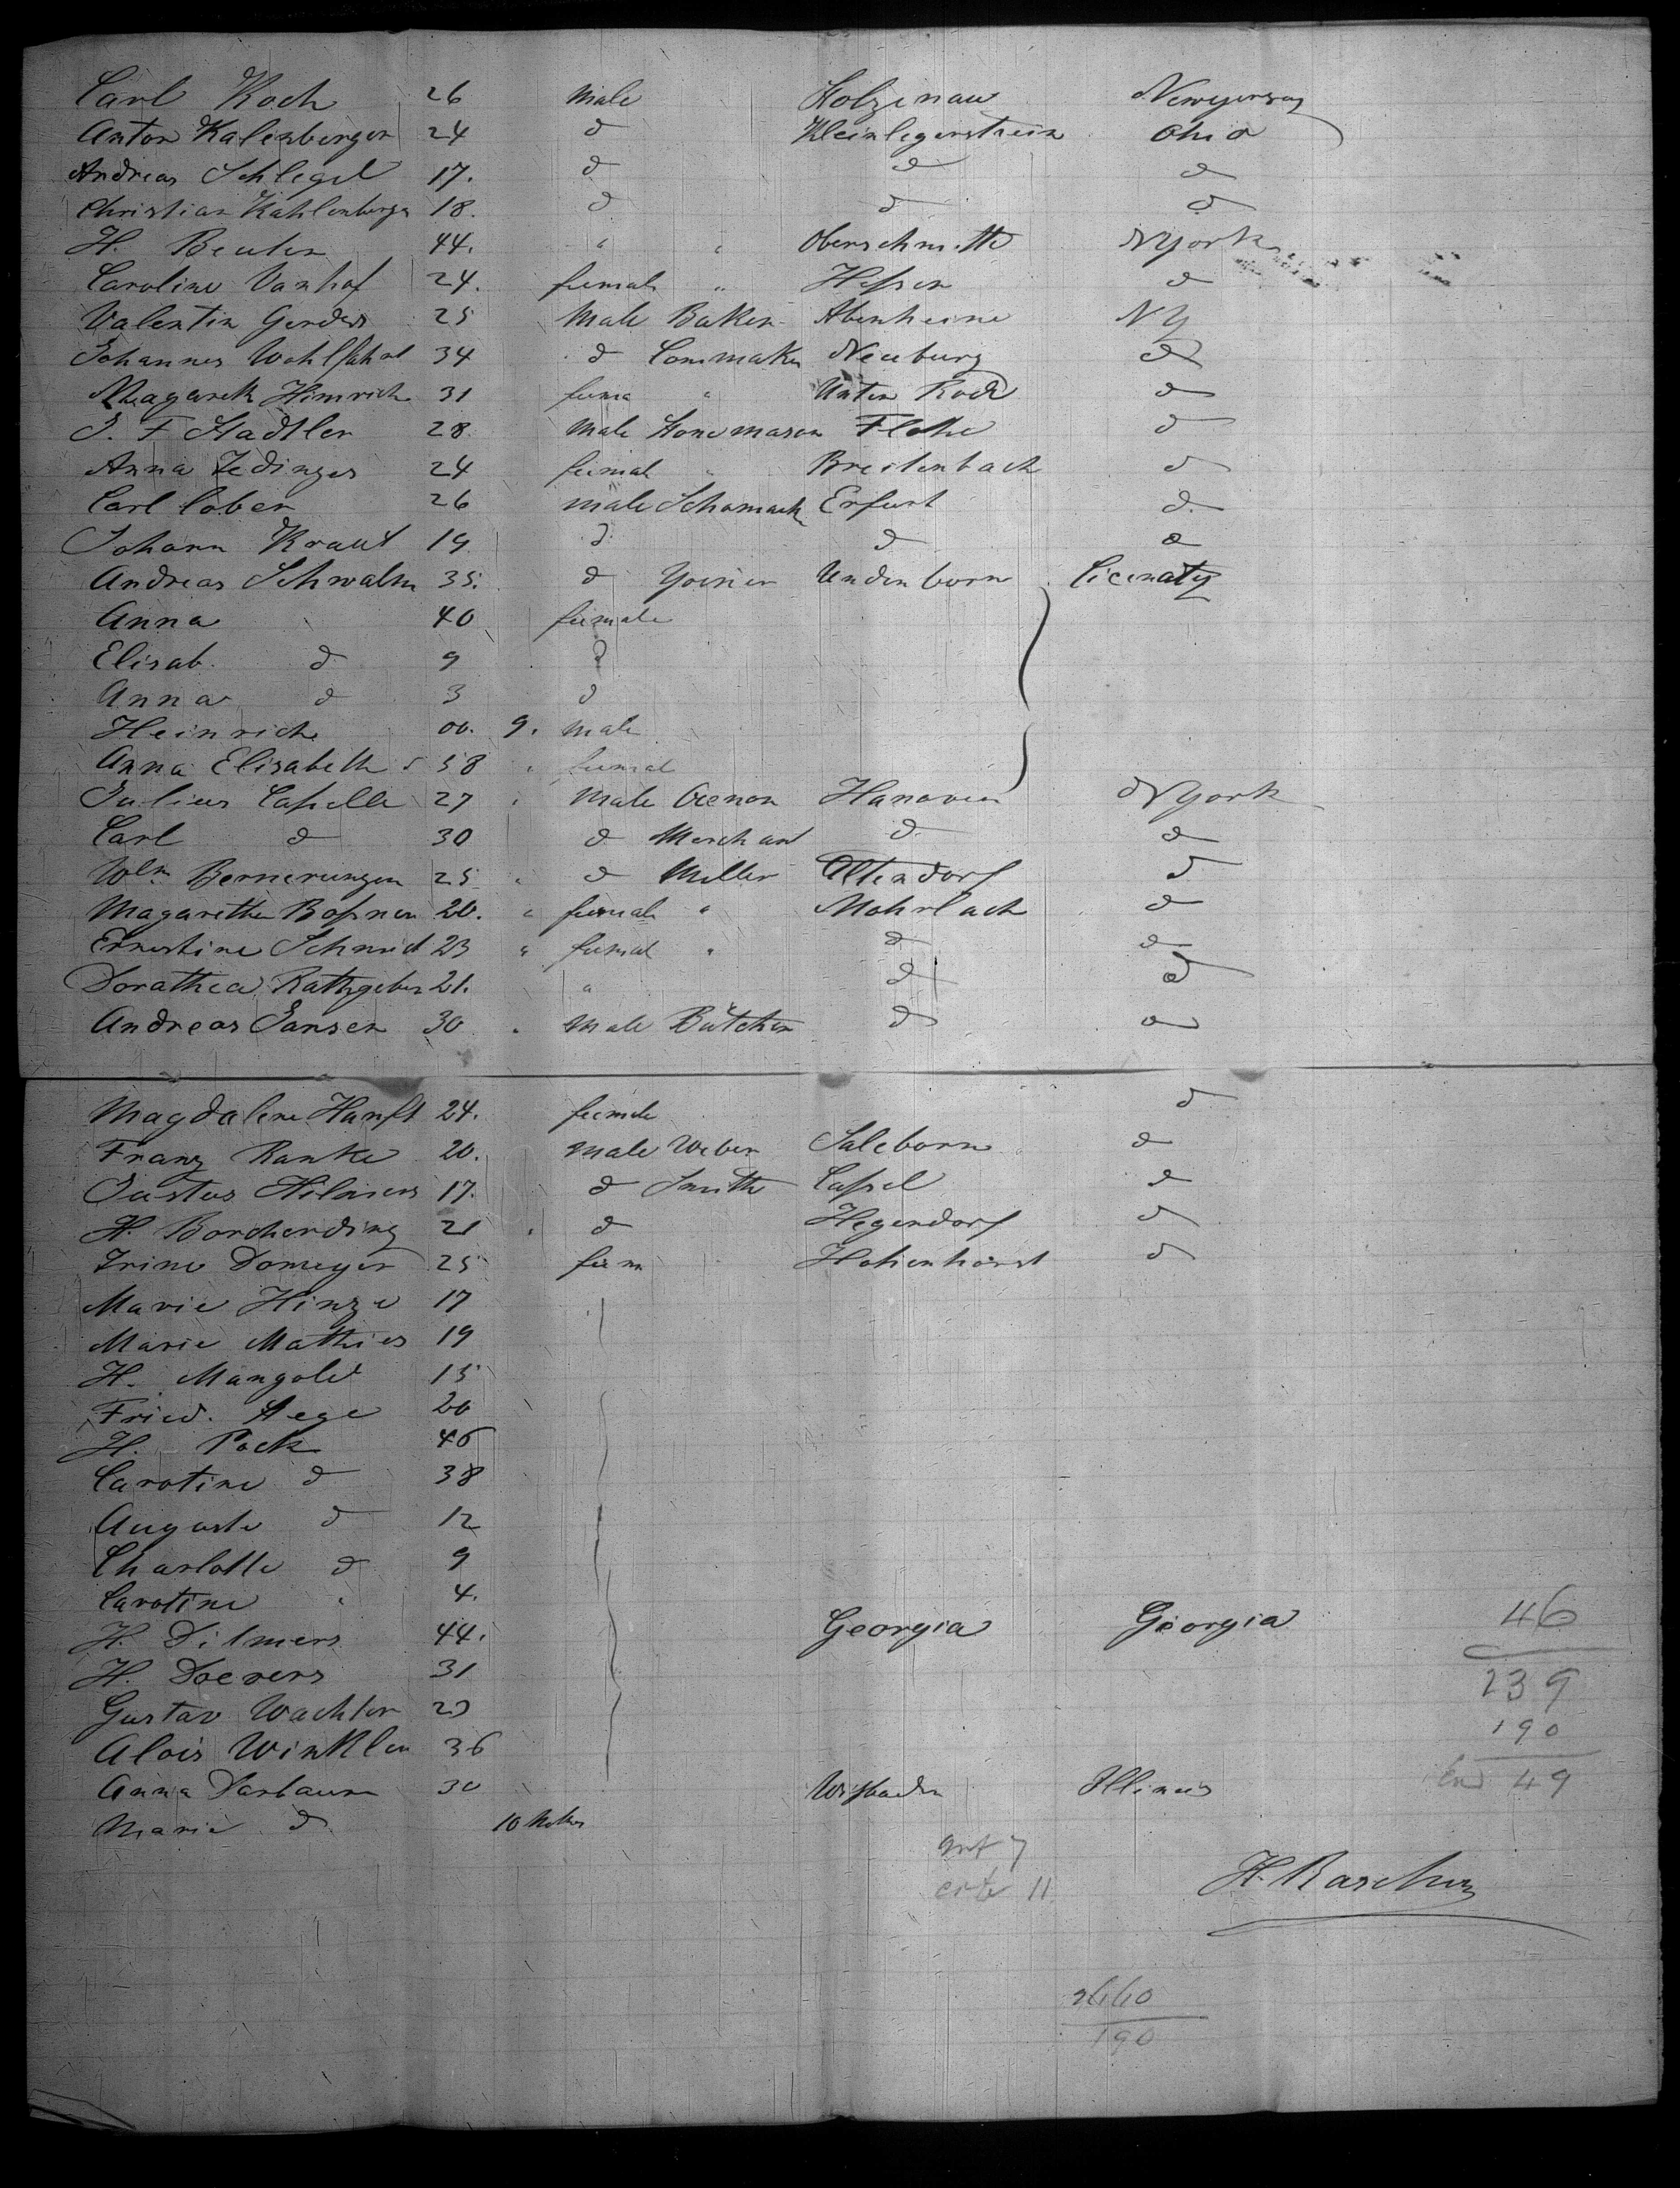 Carl Koch 26 male Holzenau Newyersey
Anton Kalenberger 24 d Kleinlegerstrein Ohio
Andreas Schlegel 17. d d d
Christian Kahlenberger 18. d d d
H. Beuler 44. " " Oberschmitte NYork
Caroline Vanhof 24. female " Hessen d
Valentin Gerders 25 Male Baker Abenheime NY
Johannes Wohlfahrt 34 d Commaker Neuburg d
Magareth Himrich 31 fema " Unter Rode d
J. F Stadtler 28 Male Stonemason Flohe d
Anna Zedinger 24 femal " Breitenbach d
Carl Cober 26 male Schomack Erfurt d
Johann Kraut 19 d d d
Andreas Schwalm 35. d Yoiner Undenborn Cicenaty
Anna 40 female
Elisab. d 9 d
Anna d 3 d
Heinrich 00. 9. male
Anna Elisabeth d 58 " femal
Julius Capelle 27 " Male Hanover NYork
Carl d 30 d Merchant d d
Wlm Bernerungen 25 " d Miller Altendorf d
Magarethe Bossner 20. " female " Mohrlach d
Ernestine Schmid 23 " femal " d d
Dorathea Rathgeber 21. " d d
Andreas Jansen 30 " Male Butcher d d
Magdalene Hanft 24. female d
Franz Ranke 20. Male Weber Saleborn d
Justus Hilmers 17. d Smith Cassel d
H. Borcherding 21 " d Hegendorf d
Trine Domeyer 25 fem Hohenhorst d
Marie Hinze 17
Marie Mathies 19
H. Mangold 15
Fried. Hege 20
H. Pock 46
Carotine d 38
Auguste d 12
Charlotte d 9
Carotine " 4.
H. Dilmers 44. Georgia Georgia 46
H. Doevers 31 239
Gustav Wachter 23 190
Alois Winkler 36
Anna Darbaum 30 Wisbaden Illinois 49
Marie d 10 Mothes
7
11
H. Raschen
190